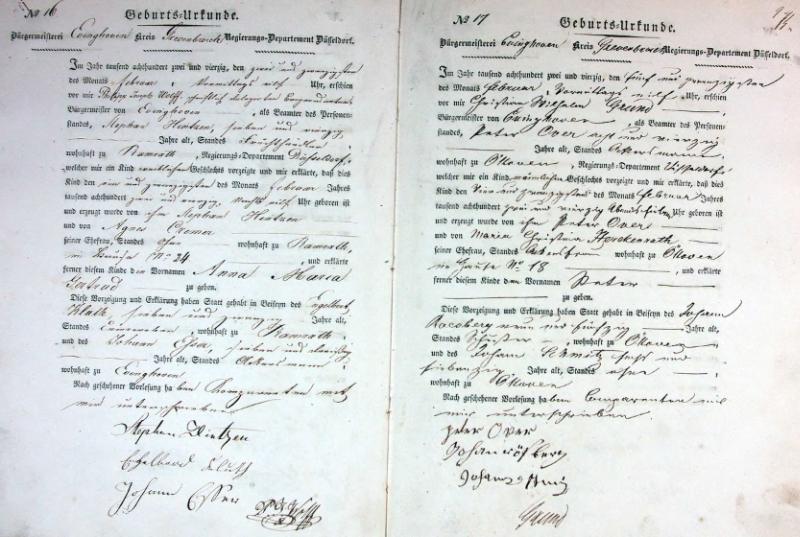 No 16
Geburts-Urkunde.
Bürgermeisterei Evinghoven Kreis Grevenbroich Regierungs-Departement Düsseldorf.
Im Jahr tausend achthundert zwei und vierzig, den zwei und zwanzigsten
des Monats Februar, Vormittags eilf Uhr, erschien
vor mir Philipp Joseph Wolff
Bürgermeister von Evinghoven, als Beamter des Personen-
standes, Stephan Hintzen, sieben und vierzig
Jahre alt, Standes
wohnhaft zu Ramrath, Regierungs-Departement Düsseldorf,
welcher mir ein Kind weiblichen Geschlechts vorzeigte und mir erklärte, daß dies
Kind den ein und zwanzigsten des Monats Februar Jahrs
tausend achthundert zwei und vierzig, Uhr geboren ist
und erzeugt wurde von ihm Stephan Hintzen
und von Agnes Cremer
seiner Ehefrau, Standes ohne wohnhaft zu Ramrath,
im Hause No 24 und erklärte
ferner diesem Kinde den Vornamen Anna Maria
Gertrud zu geben.
Diese Vorzeigung und Erklärung haben Statt gehabt in Beiseyn des Engelbert
Kluth, sieben und zwanzig Jahre alt,
Standes, wohnhaft zu Ramrath,
und des Johann Esser, sieben und dreißig
Jahre alt, Standes Ackersmann,
wohnhaft zu Evinghoven
Nach geschehener Vorlesung haben Komparenten mit
mir unterschrieben
Stephan Hintzen
Kluth
Johann Esser
Wolff
No 17
Geburts-Urkunde.
Bürgermeisterei Evinghoven Kreis Grevenbroich Regierungs-Departement Düsseldorf.
Im Jahr tausend achthundert zwei und vierzig, den fünf und zwanzigsten
des Monats Februar, Vormittags eilf Uhr, erschien
vor mir Christian Wilhelm Grund
Bürgermeister von Evinghoven, als Beamter des Personen-
standes, Peter Over acht und vierzig
Jahre alt, Standes Ackersmann,
wohnhaft zu Ökoven, Regierungs-Departement Düsseldorf,
welcher mir ein Kind männlichen Geschlechts vorzeigte und mir erklärte, daß dies
Kind den vier und zwanzigsten des Monats Februar Jahrs
tausend achthundert zwei und vierzig Abends Uhr geboren ist
und erzeugt wurde von ihm Peter Over
und von Maria Christina Herckenrath
seiner Ehefrau, Standes wohnhaft zu Ökoven
im Hause No 18 und erklärte
ferner diesem Kinde den Vornamen Peter
zu geben.
Diese Vorzeigung und Erklärung haben Statt gehabt in Beiseyn des Johann
neun und fünfzig Jahre alt,
Standes Schuster, wohnhaft zu Ökoven
und des Johann Schmitz sechs und
siebenzig Jahre alt, Standes ohne,
wohnhaft zu Ökoven
Nach geschehener Vorlesung haben Comparenten mit
mir unterschrieben.
peter Over
Johann
Johann
Grund